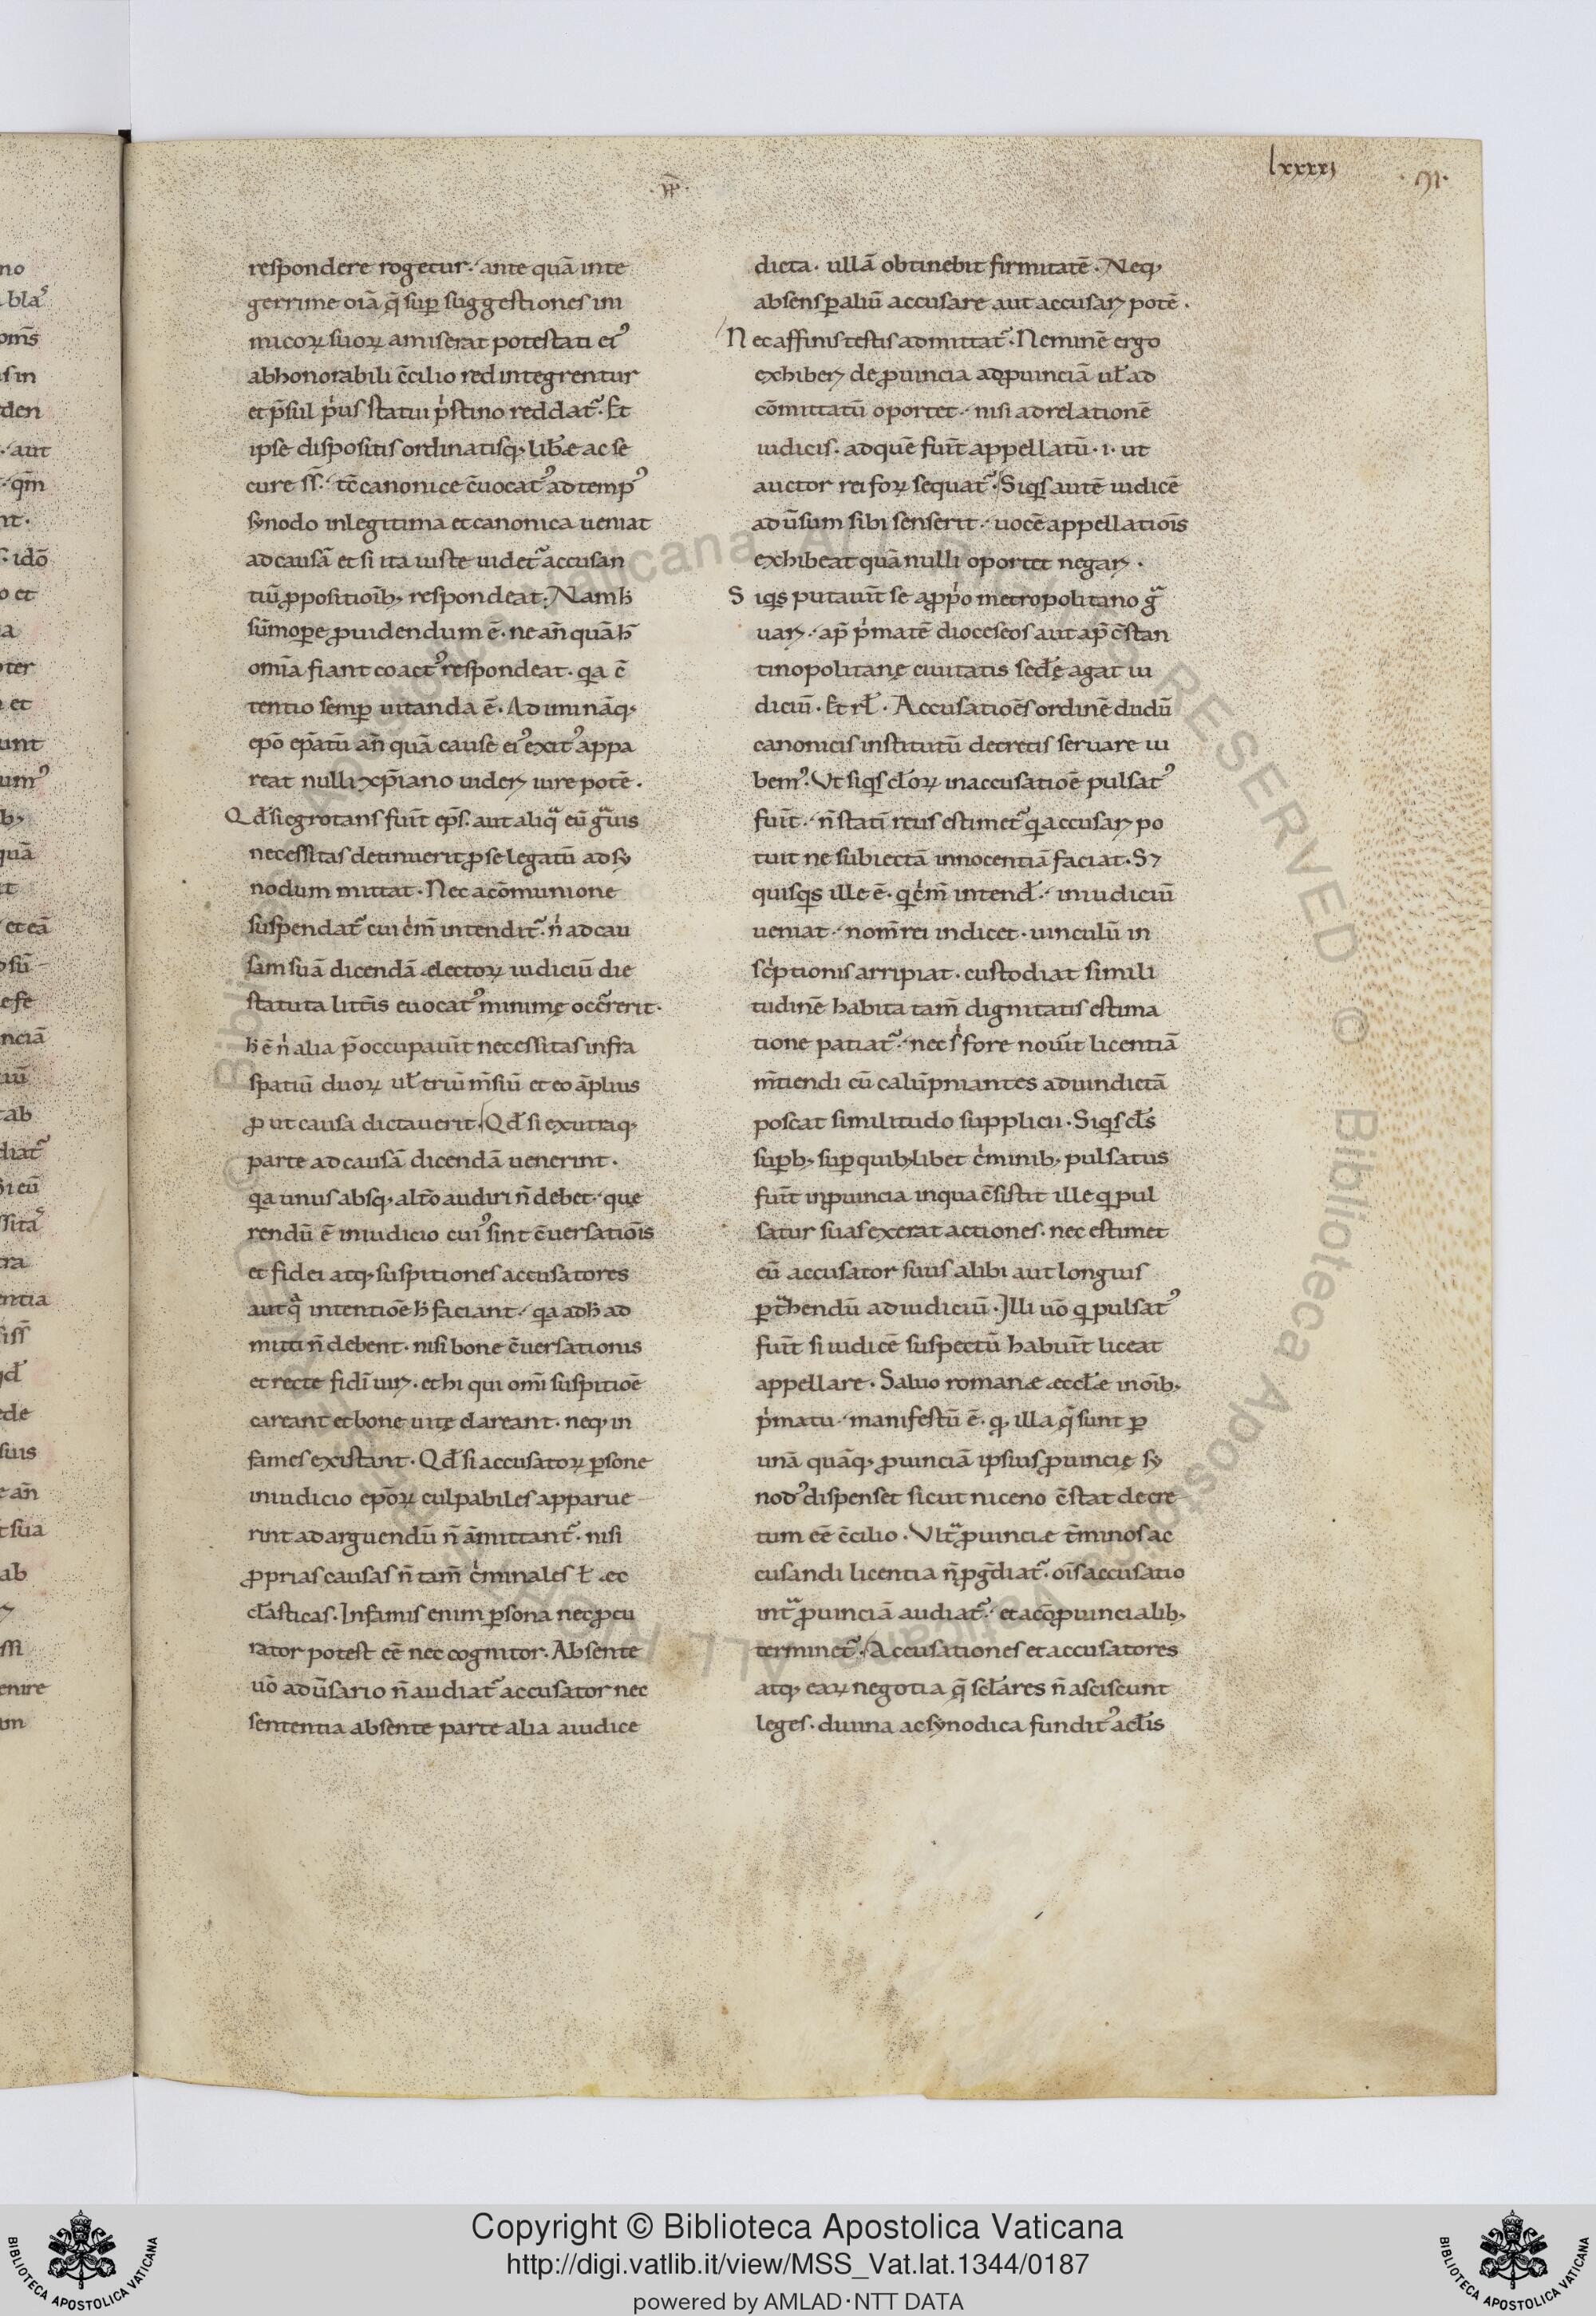 lxxxxi
·91·
respondere rogetur. ante quā inte
gerrime oīa q̄ sup̱ suggestiones ini
micoꝝ suoꝝ amiserat potestati ei᾽
abhonorabili c̄cilio redintegrentur
et p̄sul p̍us statui p̍stino reddat᷑. Et
ipse dispositis ordinatisq; lib̄e ac se
cure ss̄. tc̄ canonice c̄uocat᾽ ad temp᾽
synodo inlegitima et canonica ueniat
ad causā et si ita iuste uidet᷑ accusan
tiū ꝓpositioib; respondeat. Nam ħ
sūmopere ꝓuidendum ē. ne an̄ quā ħ
omīa fiant coact᾽ respondeat. qa c̄
tentio semp̱ uitanda ē. Ad imināq;
epō ep̄atū an̄ quā cause ei᾽ exit᾽ appa
reat nulli xp̄iano uideꝝ iure potē.
Qd̄ si egrotans fuīt ep̄s. aut aliq̄ eū gͣuis
necessitas detinuerit ꝓ se legatū ad sy
nodum mittat. Nec acōmunione
suspendat᷑ cui c̍m̄ intendit᷑. n̍ ad cau
sam suā dicendā electoꝝ iudiciū die
statuta litt̄is euocat᾽ minimę occ̄rerit.
ħ ē n̍ alia p̄occupauīt necessitas infra
spatiū duoꝝ ul̄ triū m̄siū et eo āplius
ꝓut causa dictauerit. Qd̄ si exutraq;
parte ad causā dicendā uenerint.
qa unus absq; altō audiri n̄ debet. quę
rendū ē iniudicio cui᾽ sint c̄uersatiōis
et fidei atq; suspitiones accusatores
aut qͣ intentiōe ħ faciant. qa adħ ad
mitti n̄ debent. nisi bone c̄uersationis
et recte fidī uiꝝ. et hi qui omī suspitiōe
careant et bonę uitę clareant. neq; in
fames existant. Qd̄ si accusatoꝝ p̱sone
iniudicio epōꝝ culpabiles apparue
rint ad arguendū n̄ āmittant᷑. nisi
ꝓprias causas n̄ tam̄ c̍minales ł ec
cl̄asticas. Infamis enim p̱sona nec ꝓcu
rator potest eē nec cognitor. Absente
uō adūsario n̄ audiat᷑ accusator nec
sententia absente parte alia aiudice
dicta. ullā obtinebit firmitatē. Neq;
absens p̱ aliū accusare aut accusaꝝ potē.
Nec affinis testis admittat᷑. Neminē ergo
exhibeꝝ de ꝓuincia ad ꝓuinciā ul̄ ad
cōmittatū oportet. nisi ad relationē
iudicis. ad quē fuīt appellatū. i. ut
auctor rei foꝝ sequat᷑. Siqs autē iudicē
adūsum sibi senserit. uocē appellatiōis
exhibeat quā nulli oportet negaꝝ.
Siqs putauīt se aꝓp̍o metropolitano gͣ
uaꝝ. ap̄ p̍matē dioceseos aut ap̄ c̄stan
tinopolitanę ciuitatis sed̄ę agat iu
diciū. Et rł. Accusatiōes ordinē dudū
canonicis institutū decretis seruare iu
bem᾽. Ut siqs cl̄oꝝ inaccusatiōe pulsat᾽
fuīt. n̄ statī reus estimet᷑ qi accusaꝝ po
tuit ne subiectā innocentiā faciat. S7
quisqs ille ē. qi c̍m̄ intend̄. iniudiciū
ueniat. nom̄ rei indicet. uinculū in
sc̍ptionis arripiat. custodiat simili
tudinē habita tam̄ dignitatis estima
tione patiat᷑. nec s̍ fore nouīt licentiā
m̄tiendi cū calūpniantes aduindictā
poscat similitudo supplicii. Siqs cl̄s
sup̱b; sup̱ quib;libet c̍minib; pulsatus
fuīt inꝓuincia inqua c̄sistit ille qi pul
satur suas exerat actiones. nec estimet
eū accusator suus alibi aut longius
p̱tͣhendū ad iudiciū. Illi uō qi pulsat᾽
fuīt si iudicē suspectū habuīt liceat
appellare. Saluo romane eccl̄e inoīb;
p̍matu. manifestū ē. q; illa q̄ sunt p̱
unā quāq; ꝓuinciā ipsius ꝓuincię sy
nod᾽ dispenset sicut niceno c̄stat decre
tum eē c̄cilio. Ultͣ ꝓuincie t̄minos ac
cusandi licentia n̄ ꝓg̱diat᷑. oīs accusatio
intͣ ꝓuinciā audiat᷑. et acōꝓuincialib;
terminet᷑. Accusationes et accusatores
atq; eaꝝ negotia q̄ scl̄ares n̄ asciscunt
leges. diuina ac synodica fundit᾽ acl̄is
Copyright © Biblioteca Apostolica Vaticana
http://digi.vatlib.it/view/MSS_Vat.lat.1344/0187
powered by AMLAD·NTT DATA